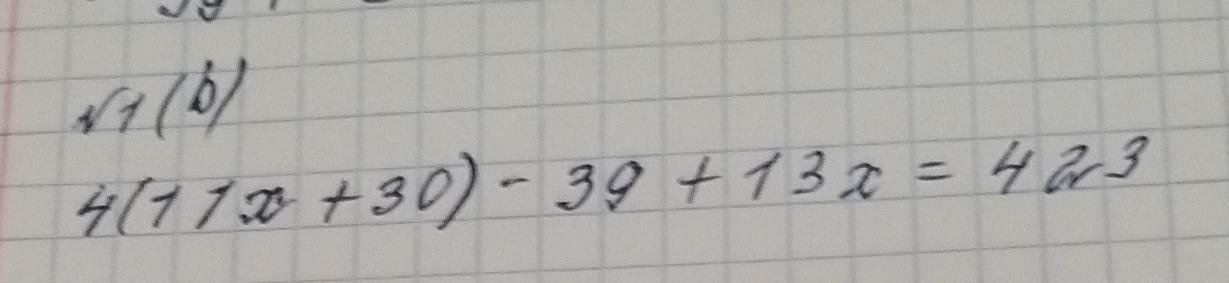 №1(b)
4(11x+30)-39+13x=423